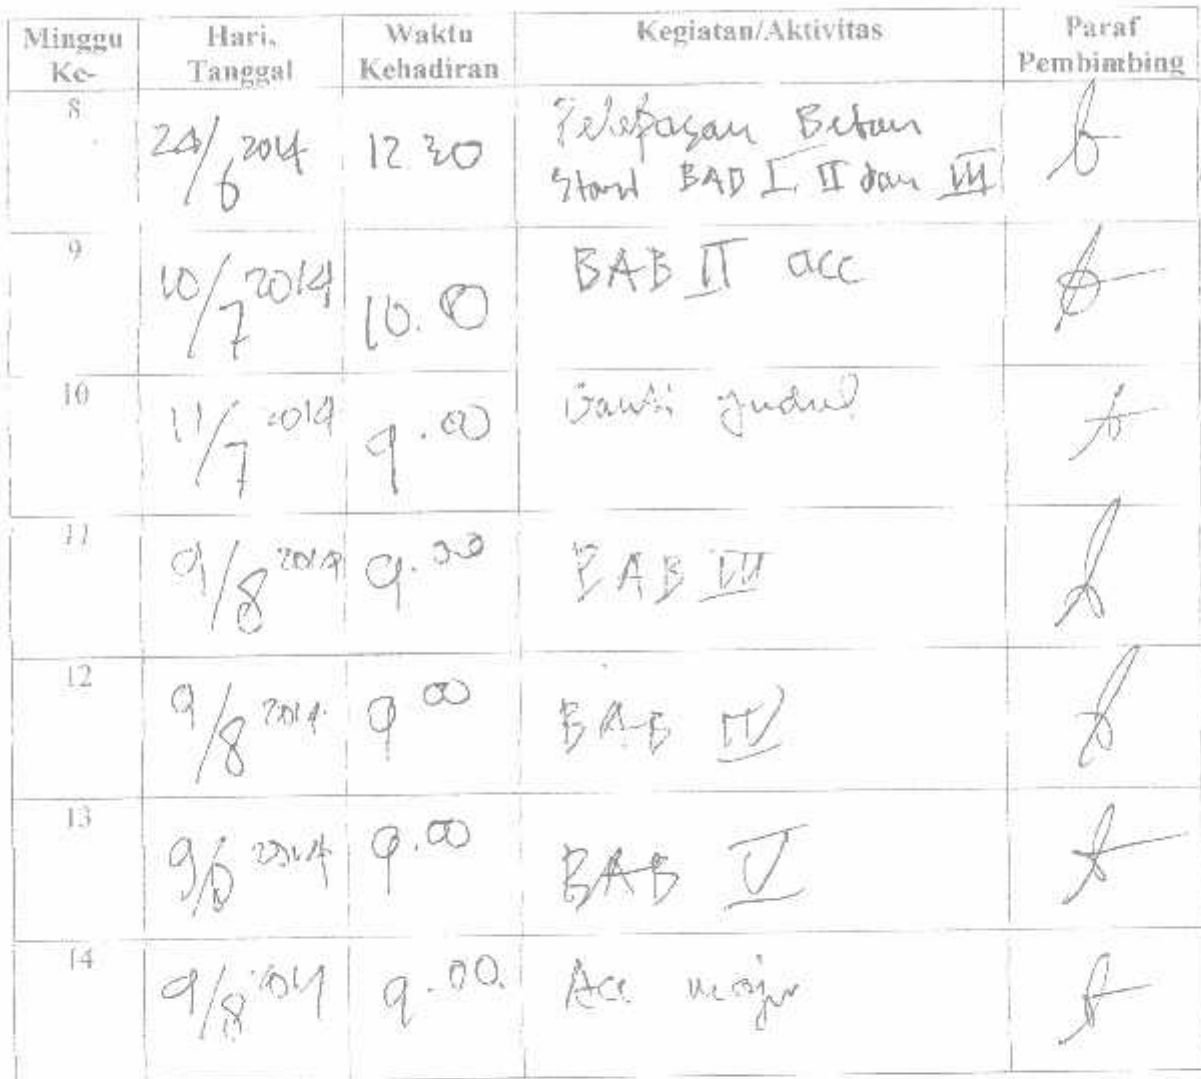 Minggu Ke- Hari, Tanggal Waktu Kehadiran Kegiatan/Aktivitas Paraf Pembimbing
8 24/6 2014 12 30
BAB I, II dan III
9 10/7 2014 10.00 BAB II acc
10 11/7 2014 9.00 Ganti judul
11 9/8 2014 9.00 BAB III
12 9/8 2014 9 00 BAB IV
13 2014 9.00 BAB V
14 9/8 2014 9.00. Acc